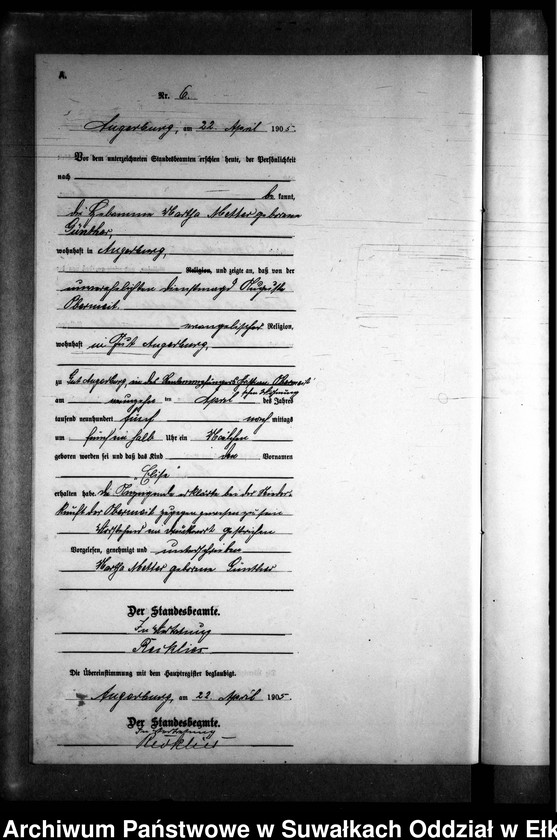 A.
Nr. 6.
Angerburg, am 22 April 1905.
Vor dem unterzeichneten Standesbeamten erschien heute, der Persönlichkeit
nach
be kannt,
die Hebamme Martha Metter geborene
Günther,
wohnhaft in Angerburg,
Religion, und zeigte an, daß von der
unverehelichten Dienstmagd Auguste
Obermeit.
evangelischer Religion,
wohnhaft in Gut Angerburg,
zu Gut Angerburg, in der Obermeit
schen Wohnung
am neunzehn ten April des Jahres
tausend neunhundert fünf nach mittags
um fünf ein halb Uhr ein Mädchen
geboren worden sei und daß das Kind den Vornamen
„Elise“
erhalten habe. Die Anzeigende erklärte bei der Nieder-
kunft der Obermeit zugegen gewesen zu sein
Vorstehend ein Druckwort gestrichen
Vorgelesen, genehmigt und unterschrieben
Martha Metter geborene Günther
Der Standesbeamte.
In Vertretung
Reiklies
Die Übereinstimmung mit dem Hauptregister beglaubigt.
Angerburg, am 22. April 1905.
Der Standesbeamte.
In Vertretung
Reiklies
Archiwum Państwowe w Suwałkach Oddział w Ełk